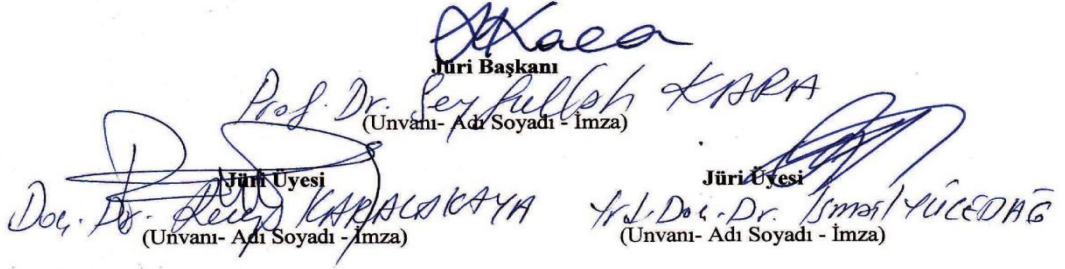 Jüri Başkanı
Prof. Dr. Seyfullah KARA
(Unvanı- Adı Soyadı - İmza)
Jüri Üyesi
Doç. Dr. Recep KARACAKAYA
(Unvanı- Adı Soyadı - İmza)
Jüri Üyesi
Yrd. Doç. Dr. İsmail YÜCEDAĞ
(Unvanı- Adı Soyadı - İmza)